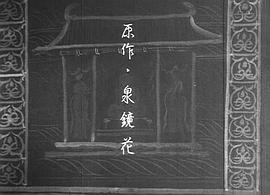 原作・泉鏡花